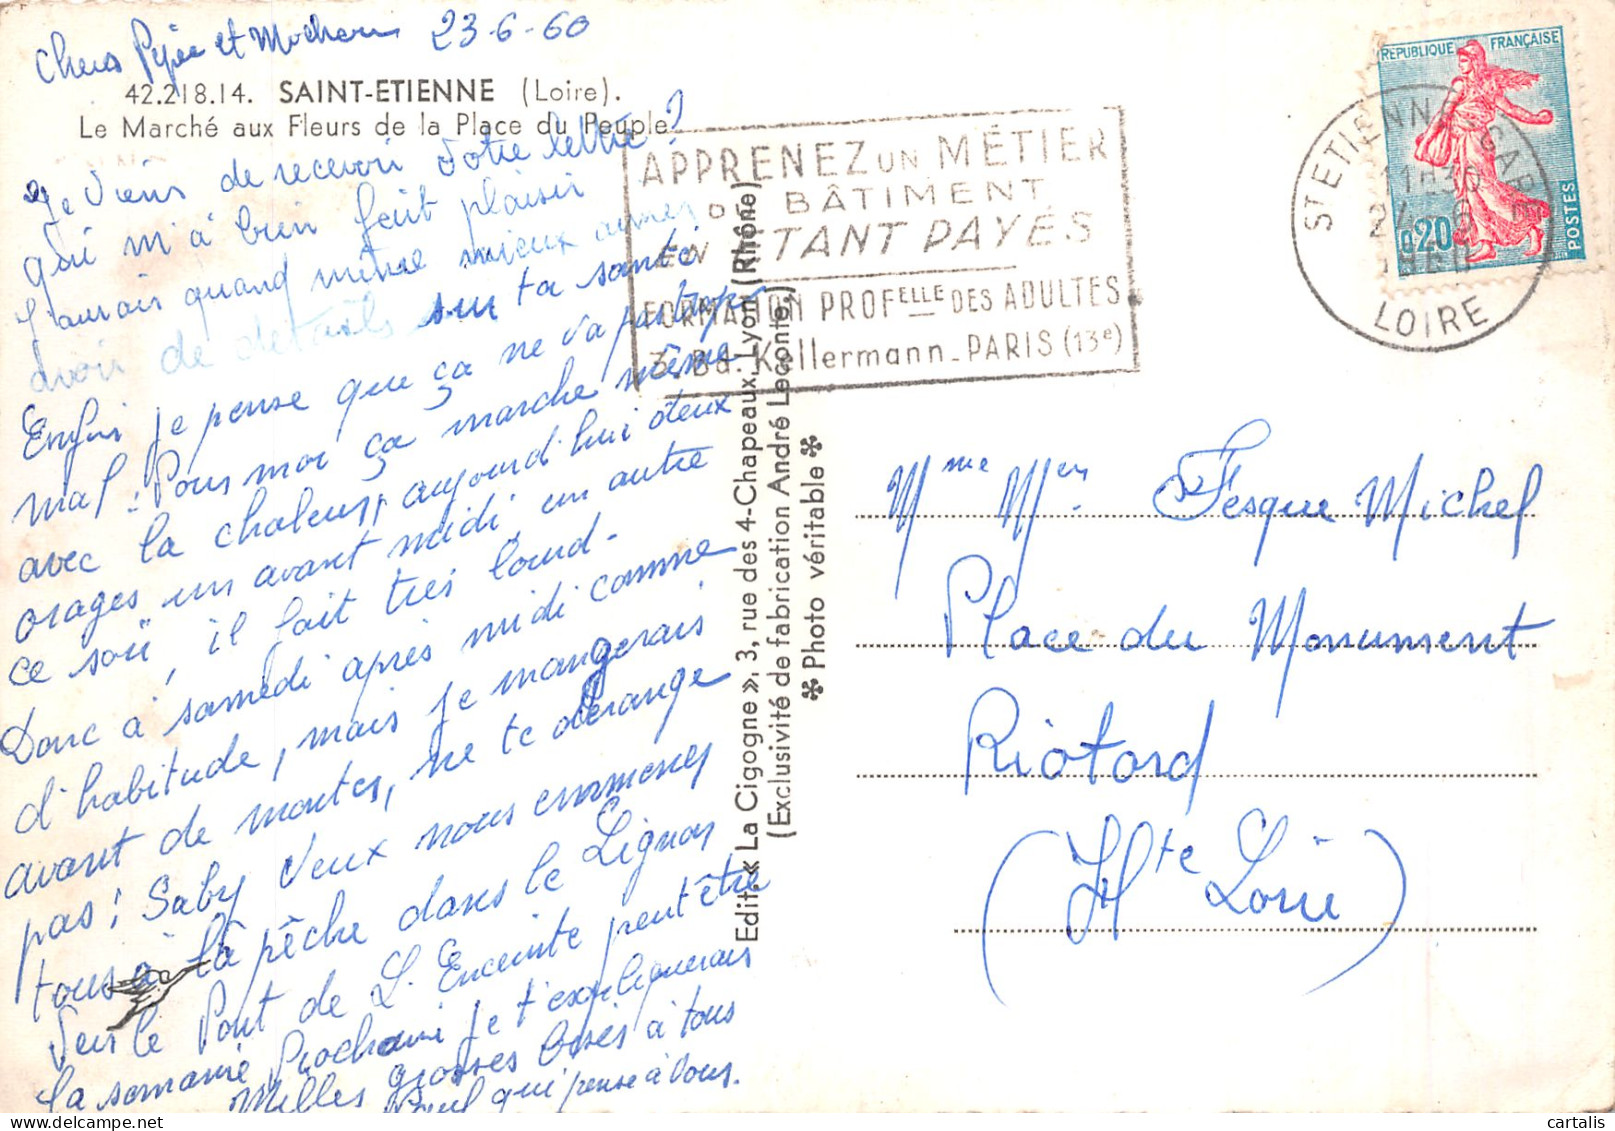 Chers Pépée et 23-6-60
42.218.14. SAINT-ETIENNE (Loire).
Le Marché aux Fleurs de la Place du Peuple
Je viens de recevoir votre lettre
qui m'a bien fait plaisir
j'aurais quand même mieux aimer
avoir de détails sur ta santé
Enfin je pense que ça ne va pas trop
mal. Pour moi ça marche même
avec la chaleur, aujourd'hui deux
orages un avant midi, un autre
ce soir, il fait très lourd.
Donc à samedi après midi comme
d'habitude, mais je mangerais
avant de monter, ne te dérange
pas; Saby veux nous emmener
tous à la pêche dans le Lignon
Sur le Pont de L'Enceinte peut être
la semaine prochaine je t'expliquerais
Milles grosses bises à tous
Paul qui pense à vous.
APPRENEZ UN MÉTIER
DU BÂTIMENT
EN ÉTANT PAYÉS
FORMATION PROFELLE DES ADULTES
3. Bd. Kellermann - PARIS (13e)
Edit. « La Cigogne », 3, rue des 4-Chapeaux, Lyon (Rhône)
(Exclusivité de fabrication André Leconte)
✻ Photo véritable ✻
REPUBLIQUE FRANÇAISE
0,20
POSTES
ST ETIENNE GARE
11H30
24-6
1960
LOIRE
Mme Mer Fesque Michel
Place du Monument
Riotord
(Hte Loire)
cartalis